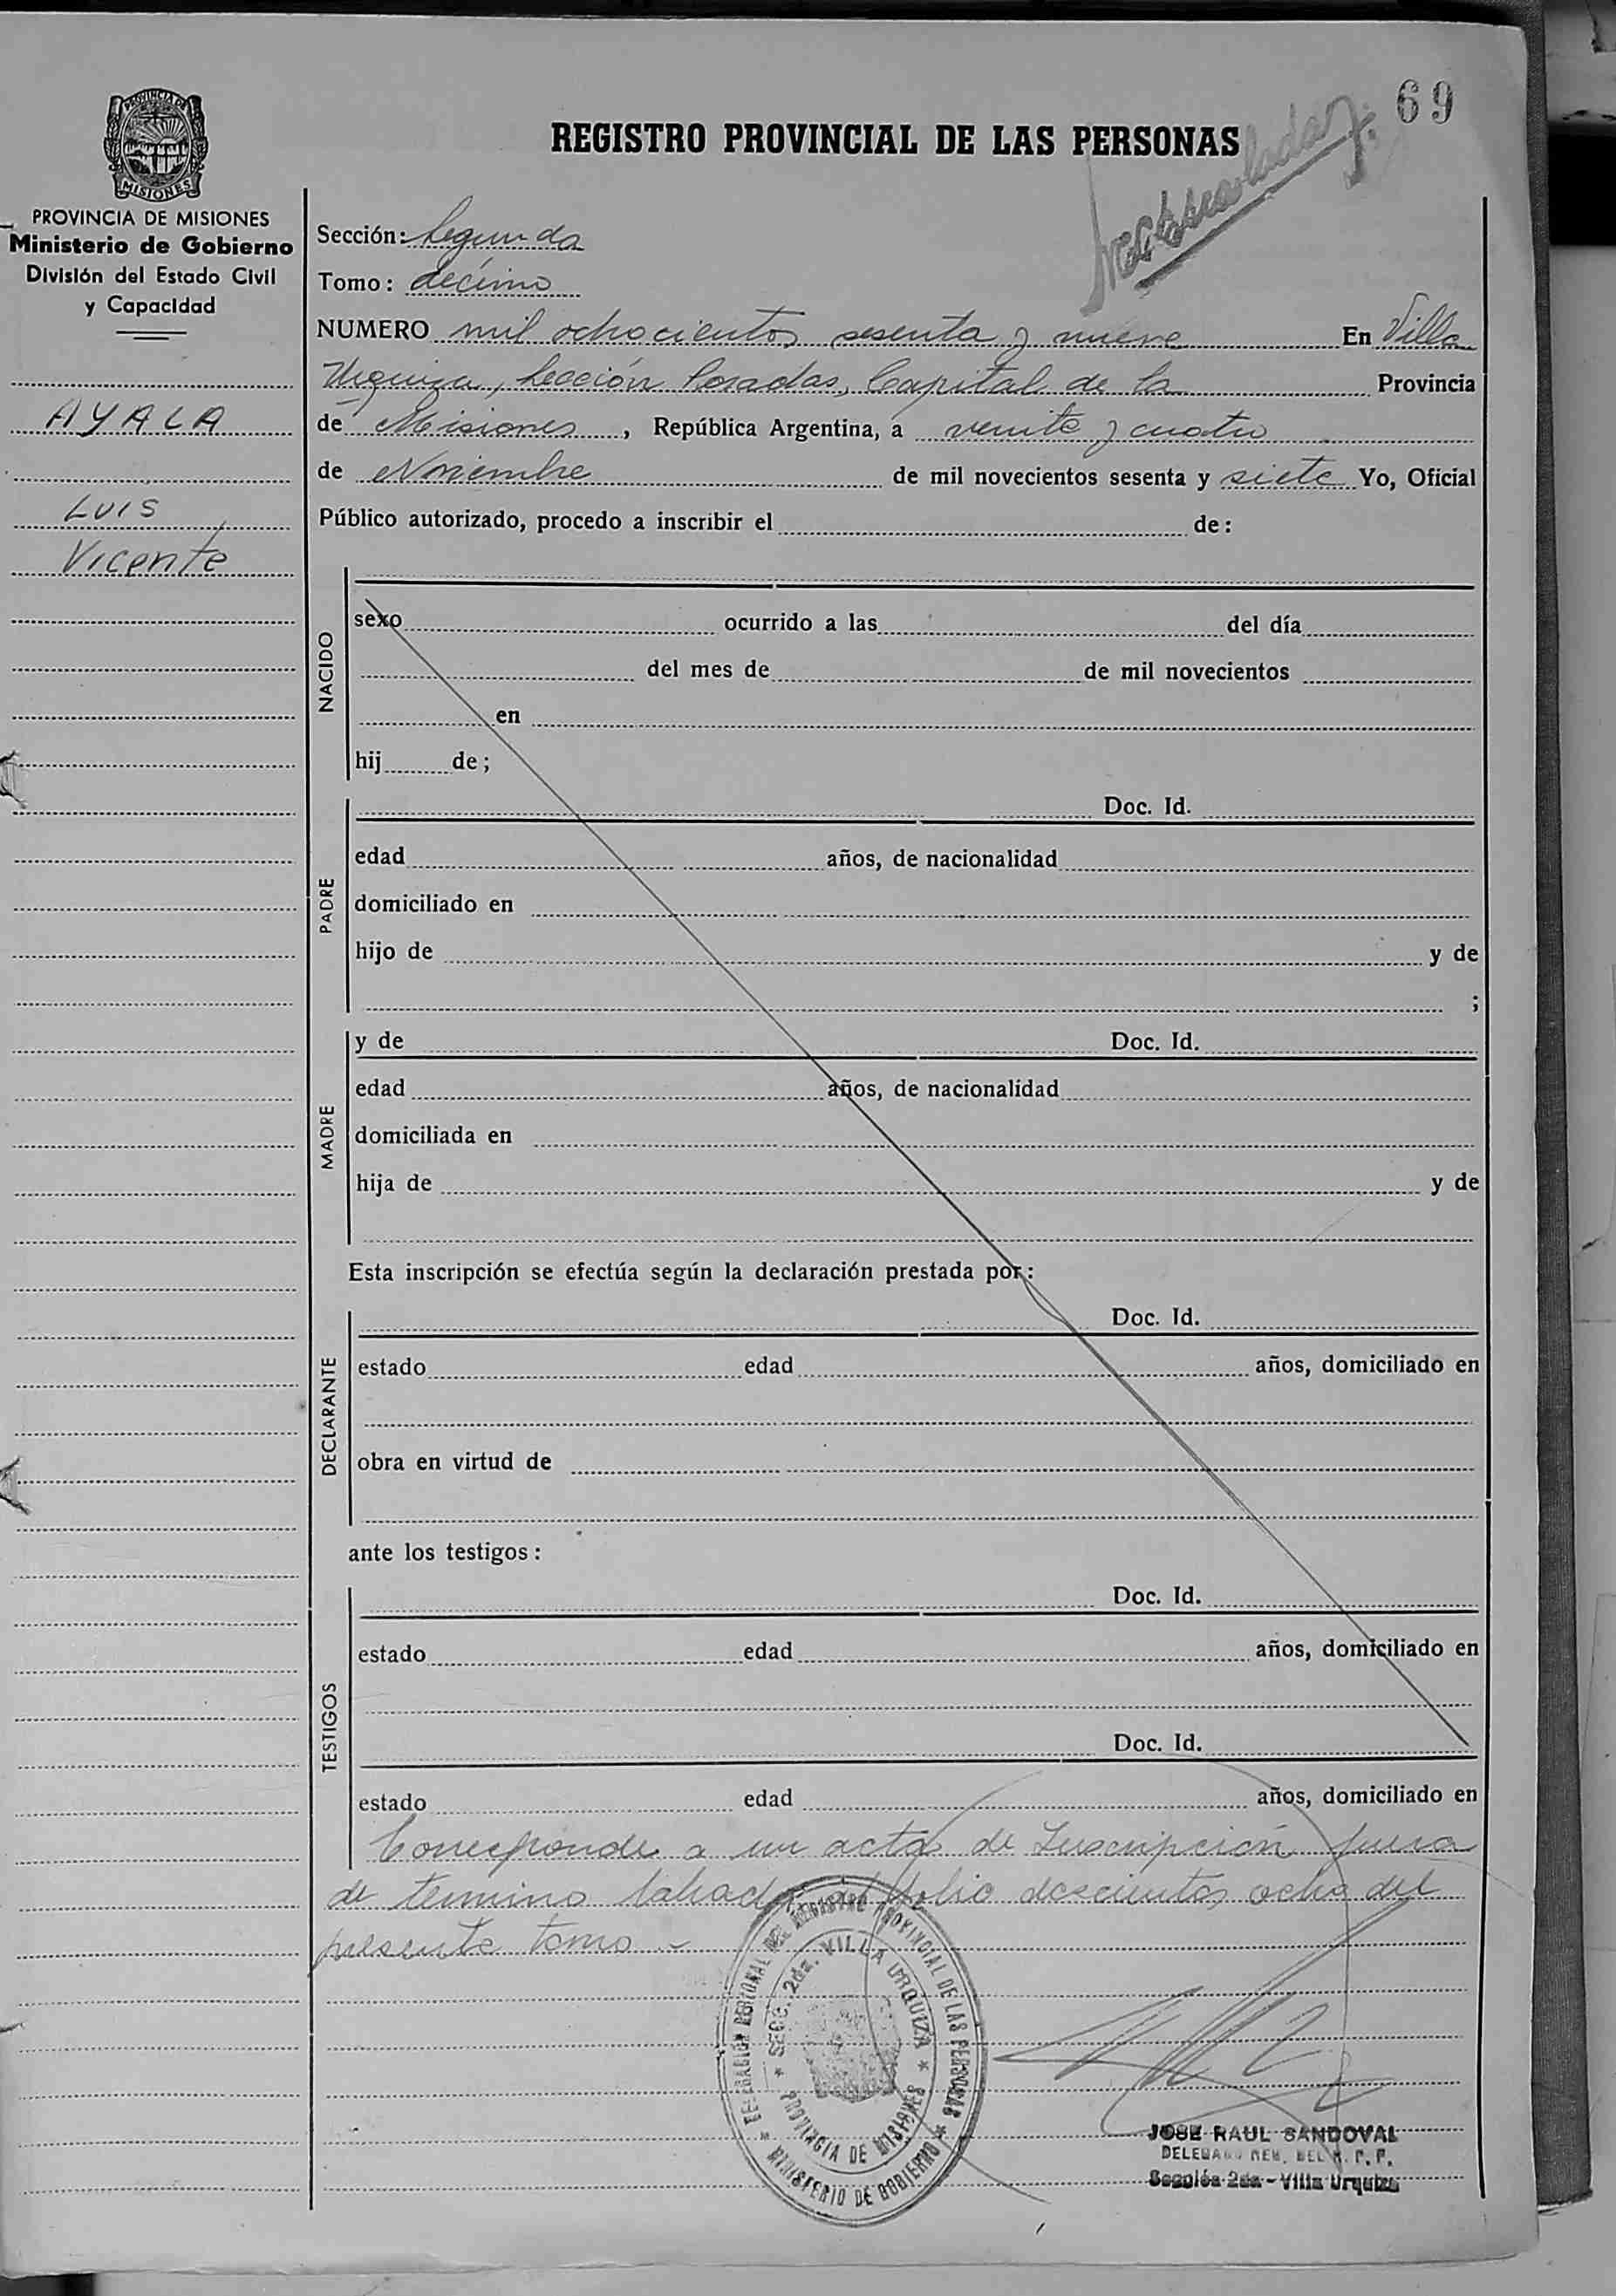 69
REGISTRO PROVINCIAL DE LAS PERSONAS
PROVINCIA DE
MISIONES
PROVINCIA DE MISIONES
Ministerio de Gobierno
División del Estado Civil
y Capacidad
AYALA
LUIS
Vicente
Sección: Segunda
Tomo: décimo
NUMERO mil ochocientos sesenta y nueve En Villa
Urquiza, Sección Posadas, Capital de la Provincia
de Misiones, República Argentina, a veinte y cuatro
de Noviembre de mil novecientos sesenta y siete Yo, Oficial
Público autorizado, procedo a inscribir el de:
NACIDO
sexo ocurrido a las del día
del mes de de mil novecientos
en
hij de;
PADRE
Doc. Id.
edad años, de nacionalidad
domiciliado en
hijo de y de
;
MADRE
y de Doc. Id.
edad años, de nacionalidad
domiciliada en
hija de y de
Esta inscripción se efectúa según la declaración prestada por:
DECLARANTE
Doc. Id.
estado edad años, domiciliado en
obra en virtud de
ante los testigos:
TESTIGOS
Doc. Id.
estado edad años, domiciliado en
Doc. Id.
estado edad años, domiciliado en
Corresponde a un acta de Inscripción fuera
de termino labrada al folio doscientos ocho del
presente tomo -
DELEGACIÓN REGIONAL DEL REGISTRO PROVINCIAL DE LAS PERSONAS
SECC. 2da. VILLA URQUIZA
PROVINCIA DE MISIONES
MINISTERIO DE GOBIERNO
JOSE RAUL SANDOVAL
DELEGADO REG. DEL R. P. P.
Sección 2da - Villa Urquiza